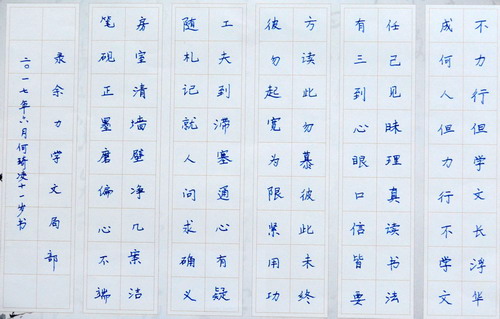 不力行但学文长浮华
成何人但力行不学文
任己见昧理真读书法
有三到心眼口信皆要
方读此勿慕彼此未终
彼勿起宽为限紧用功
工夫到滞塞通心有疑
随札记就人问求确义
房室清墙壁净几案洁
笔砚正墨磨偏心不端
录余力学文局部
二〇一七年六月何琦凌十一岁书